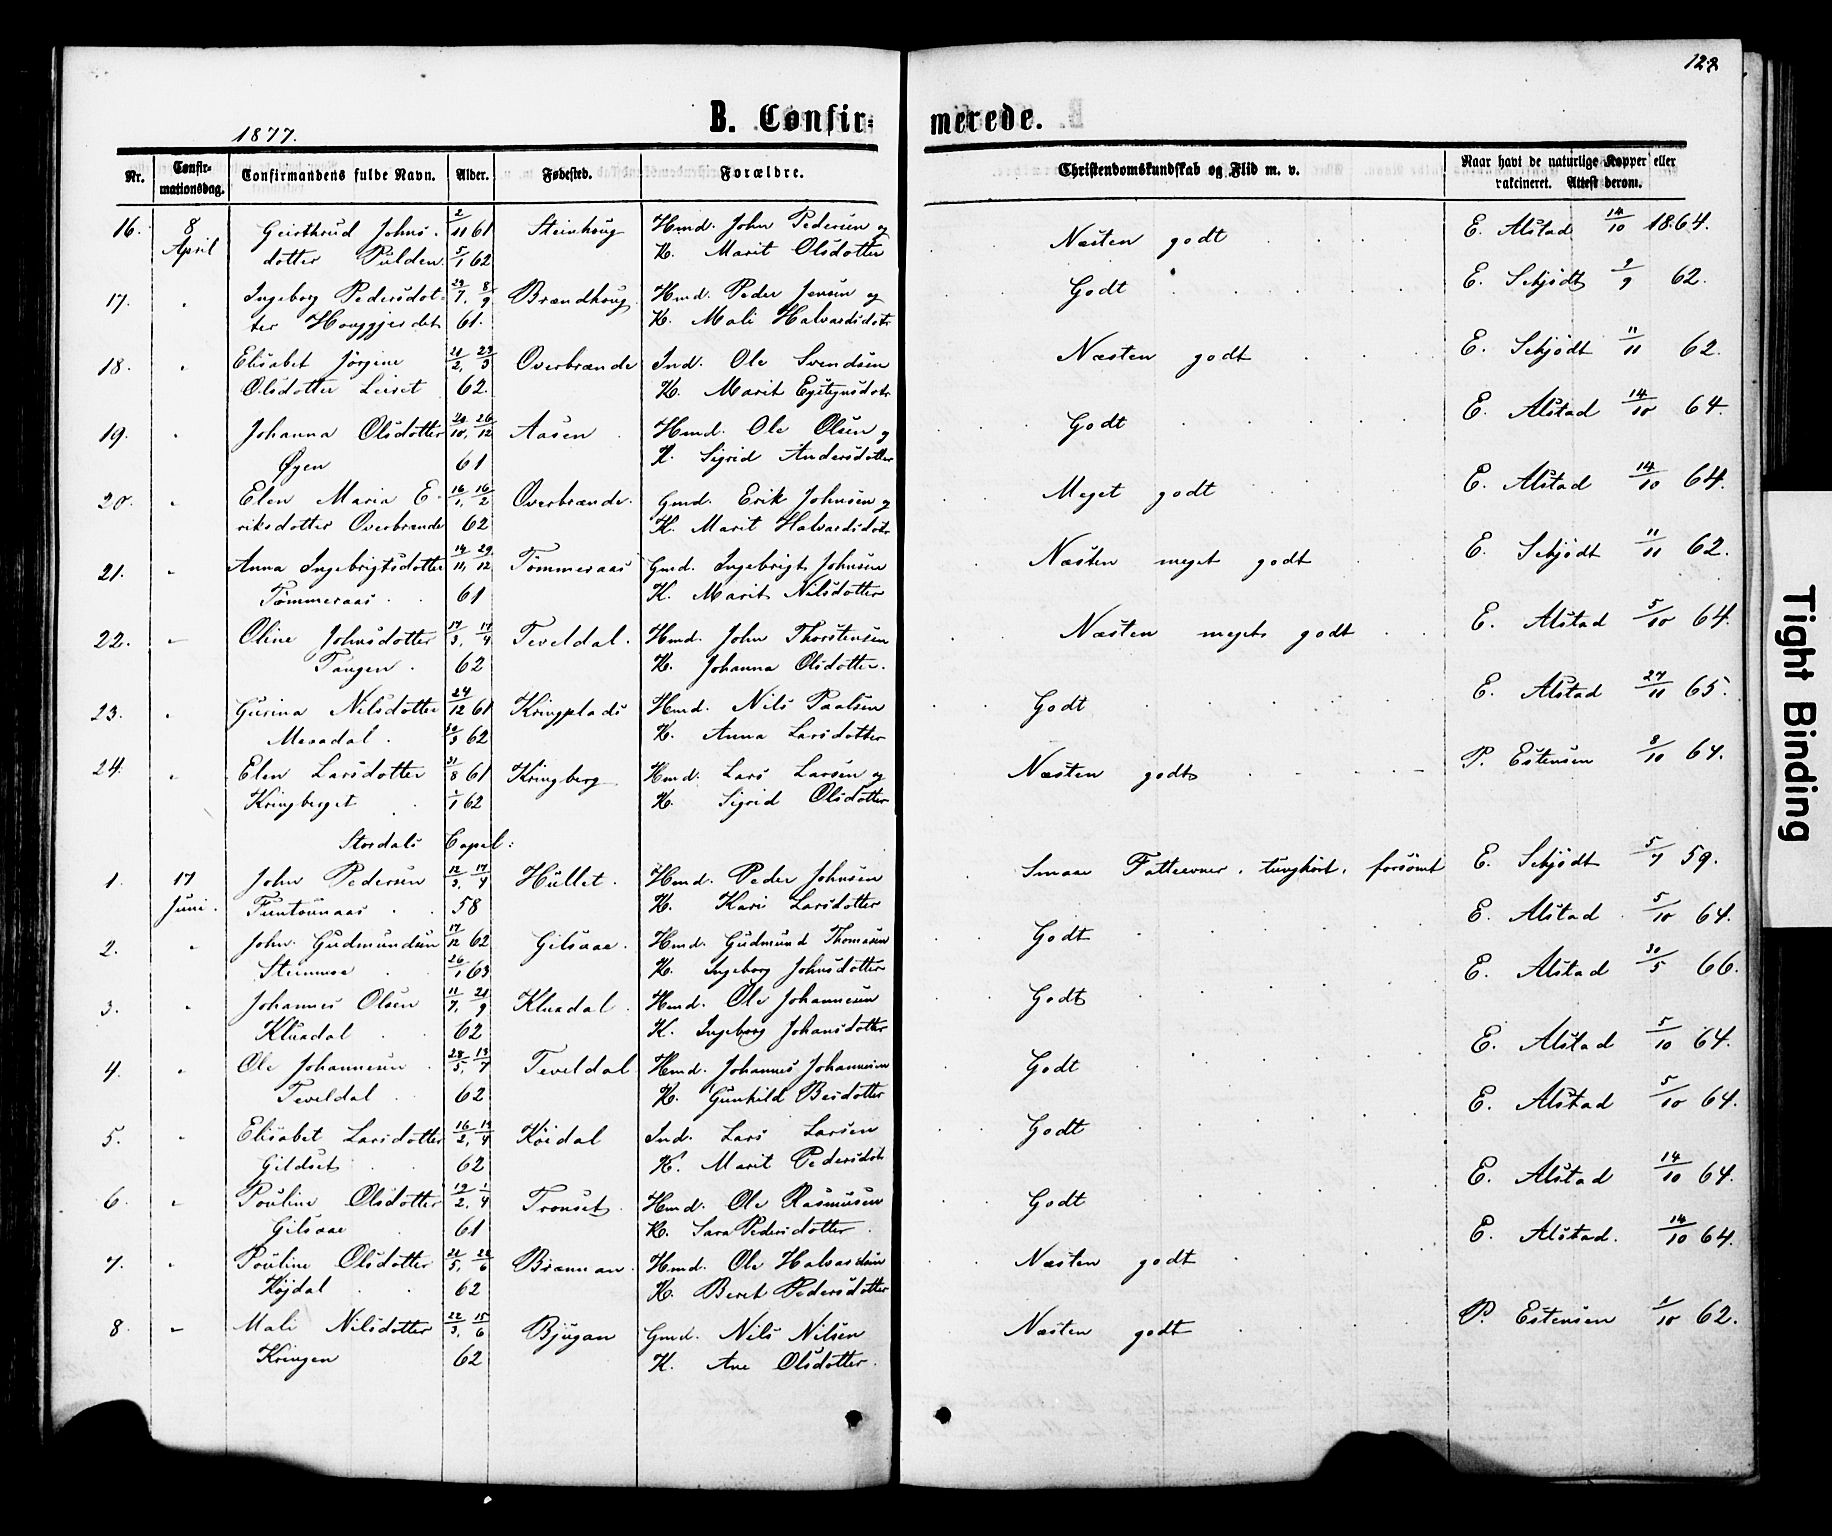 122
B. Confirmerede.
1877.
Nr. Confirmationsdag. Confirmandens fulde Navn. Alder. Fødested. Forældre. Christendomskundskab og Flid m. v. Naar havt de naturlige Kopper eller vakcineret. Attest derom.
16. 8 Geirthrud Johns- 2/11 61 Steinhoug Hmd. John Pedersen og Næsten godt E. Alstad 14/10 1864.
April dotter Pulden 5/1 62 K. Marit Olsdotter
17. " Ingeborg Pedersdot- 29/7, 8/9 Brændhoug Hmd. Peder Jensen og Godt E. Schjödt 9/9 62.
ter Houggjerdet 61. K. Mali Halvardsdotr
18. " Elisabet Jörgine 21/2, 23/3 Overbrænde Ind. Ole Svendsen Næsten godt E. Schjödt 11/11 62.
Olsdotter Leiret 62. K. Marit Eysteynsdotr
19. " Johanna Olsdotter 20/10, 26/12 Aasen Hmd. Ole Olsen og Godt E. Alstad 14/10 64.
Øyen 61 K. Sigrid Andersdotter
20. " Elen Maria E- 16/1, 16/2 Overbrænde. Gmd. Erik Johnsen og Meget godt E. Alstad 14/10 64.
riksdotter Overbrænde 62 K. Marit Halvardsdotr
21. " Anna Ingebrigtsdotter 14/11, 29/12 Tömmeraas Gmd. Ingebrigt Johnsen Næsten meget godt E. Schjödt 11/11 62.
Tömmeraas 61 K. Marit Nilsdotter
22. " Oline Johnsdotter 17/3, 17/4 Teveldal. Hmd. John Thorstensen Næsten meget godt E. Alstad 5/10 64.
Tangen 62 K. Johanna Olsdotter.
23. " Gurina Nilsdotter 24/12 61 Kringplads Hmd. Nils Paalsen Godt E. Alstad 27/11 65.
Meradal 30/3 62 K. Anna Larsdotter
24. " Elen Larsdotter 31/8 61 Kringberg Hmd. Lars Larsen og Næsten godt P. Estensen 8/10 64.
Kringberget 1/1 62 K. Sigrid Olsdotter
Stordals Capel:
1. 17 John Pedersen 12/3, 17/4 Hullet. Hmd. Peder Johnsen Smaae Fatteevner, tunghört, forsömt E. Schjödt 5/7 59.
Juni. Funtounaas 58 K. Kari Larsdotter
2. " John Gudmundsen 17/12 62 Gilsaae. Hmd. Gudmund Thomasen Godt E. Alstad 5/10 64.
Steinmoe 26/1 63 K. Ingeborg Johnsdotter
3. " Johannes Olsen 11/7, 21/9 Kluxdal. Hmd. Ole Johannesen Godt E. Alstad 30/5 66.
Kluxdal 62 K. Ingeborg Johansdotter
4. " Ole Johannesen 28/5, 13/7 Teveldal Hmd. Johannes Johannesen Godt E. Alstad 5/10 64.
Teveldal 62 K. Gunhild Besdotter
5. " Elisabet Larsdotter 16/2, 14/4 Köidal Ind. Lars Larsen Godt E. Alstad 5/10 64.
Gildset 62 K. Marit Pedersdotr
6. " Pouline Olsdotter 19/2, 1/4 Tronset. Hmd. Ole Rasmusen Godt E. Alstad 14/10 64.
Gilsaae 61 K. Sara Pedersdotter
7. " Pouline Olsdotter 21/5, 26/6 Brænnan. Hmd. Ole Halvardsen Næsten godt E. Alstad. 14/10 64.
Köjdal 62 K. Beret Pedersdotter
8. " Mali Nilsdotter 22/3, 15/6 Bjugan Gmd. Nils Nilsen Næsten godt P. Estensen 1/10 62.
Kringen 62 K. Ane Olsdotter.
Tight Binding